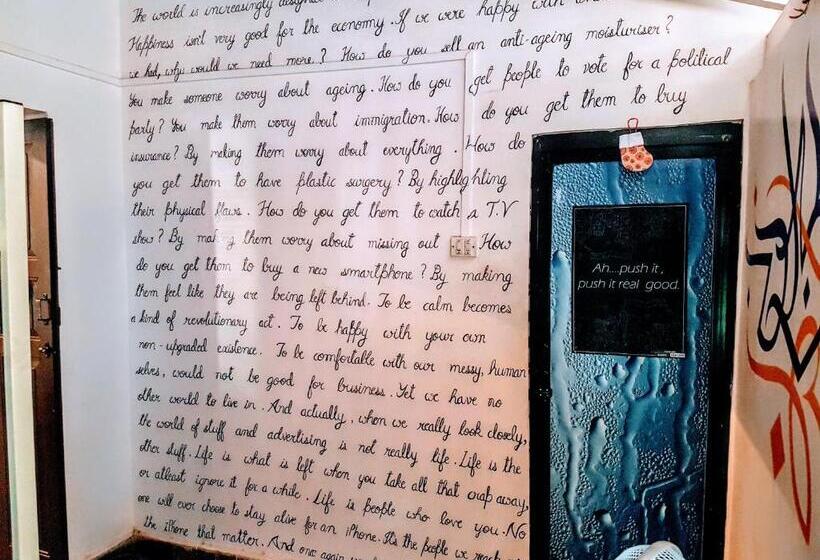 The world is increasingly
Happiness isn't very good for the economy. If we were happy with
we had, why would we need more? How do you sell an anti-ageing moisturiser?
You make someone worry about ageing. How do you get people to vote for a political
party? You make them worry about immigration. How do you get them to buy
insurance? By making them worry about everything. How do
you get them to have plastic surgery? By highlighting
their physical flaws. How do you get them to watch a T.V
show? By making them worry about missing out. How
do you get them to buy a new smartphone? By making
them feel like they are being left behind. To be calm becomes
a kind of revolutionary act. To be happy with your own
non-upgraded existence. To be comfortable with our messy, human
selves, would not be good for business. Yet we have no
other world to live in. And actually, when we really look closely,
the world of stuff and advertising is not really life. Life is the
other stuff. Life is what is left when you take all that crap away,
or atleast ignore it for a while. Life is people who love you. No
one will ever choose to stay alive for an iPhone. It's the people we reach
the iPhone that matter. And once again
Ah...push it,
push it real good.